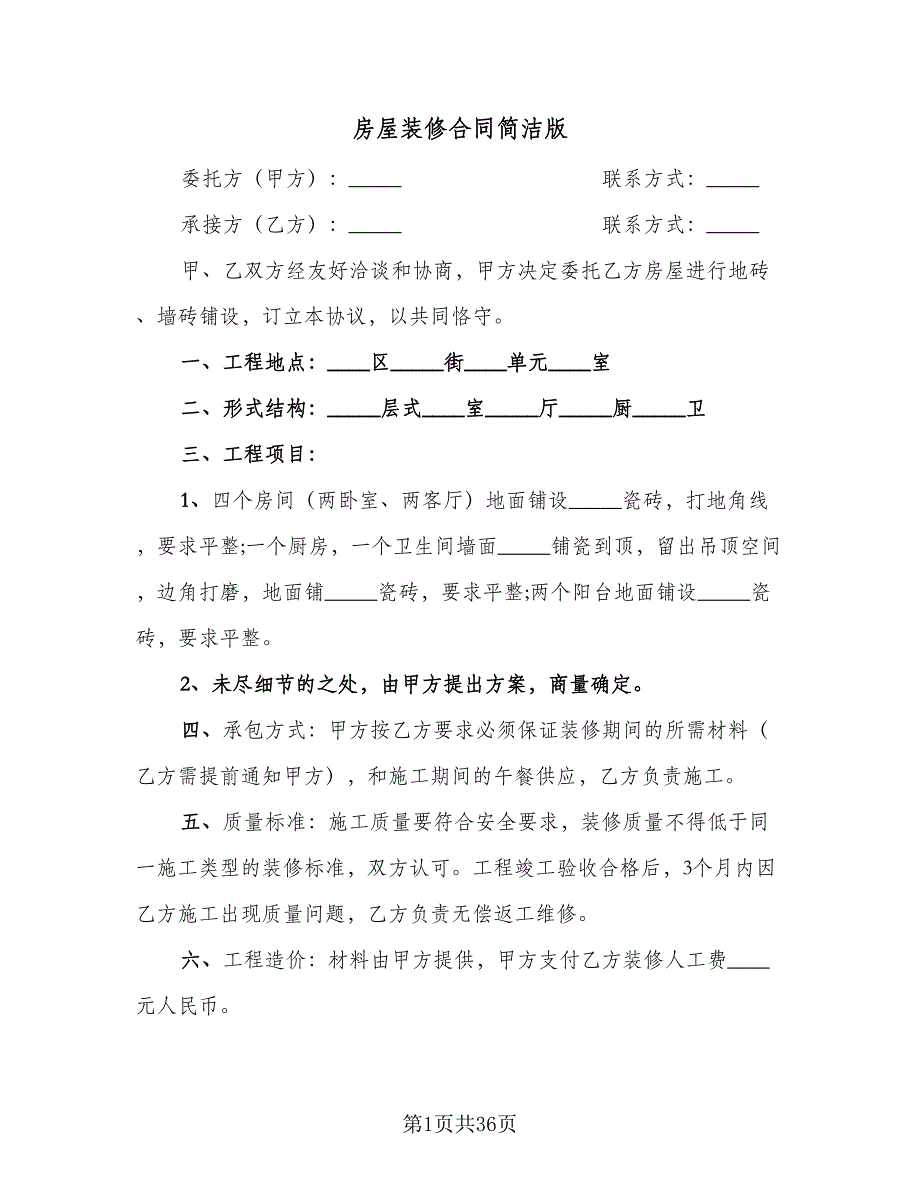 房屋装修合同简洁版
委托方（甲方）：_____ 联系方式：_____
承接方（乙方）：_____ 联系方式：_____
甲、乙双方经友好洽谈和协商，甲方决定委托乙方房屋进行地砖
、墙砖铺设，订立本协议，以共同恪守。
一、工程地点：____区_____街____单元____室
二、形式结构：_____层式____室_____厅_____厨_____卫
三、工程项目：
1、四个房间（两卧室、两客厅）地面铺设_____瓷砖，打地角线
，要求平整;一个厨房，一个卫生间墙面_____铺瓷到顶，留出吊顶空间
，边角打磨，地面铺_____瓷砖，要求平整;两个阳台地面铺设_____瓷
砖，要求平整。
2、未尽细节的之处，由甲方提出方案，商量确定。
四、承包方式：甲方按乙方要求必须保证装修期间的所需材料（
乙方需提前通知甲方），和施工期间的午餐供应，乙方负责施工。
五、质量标准：施工质量要符合安全要求，装修质量不得低于同
一施工类型的装修标准，双方认可。工程竣工验收合格后，3个月内因
乙方施工出现质量问题，乙方负责无偿返工维修。
六、工程造价：材料由甲方提供，甲方支付乙方装修人工费____
元人民币。
第1页共36页